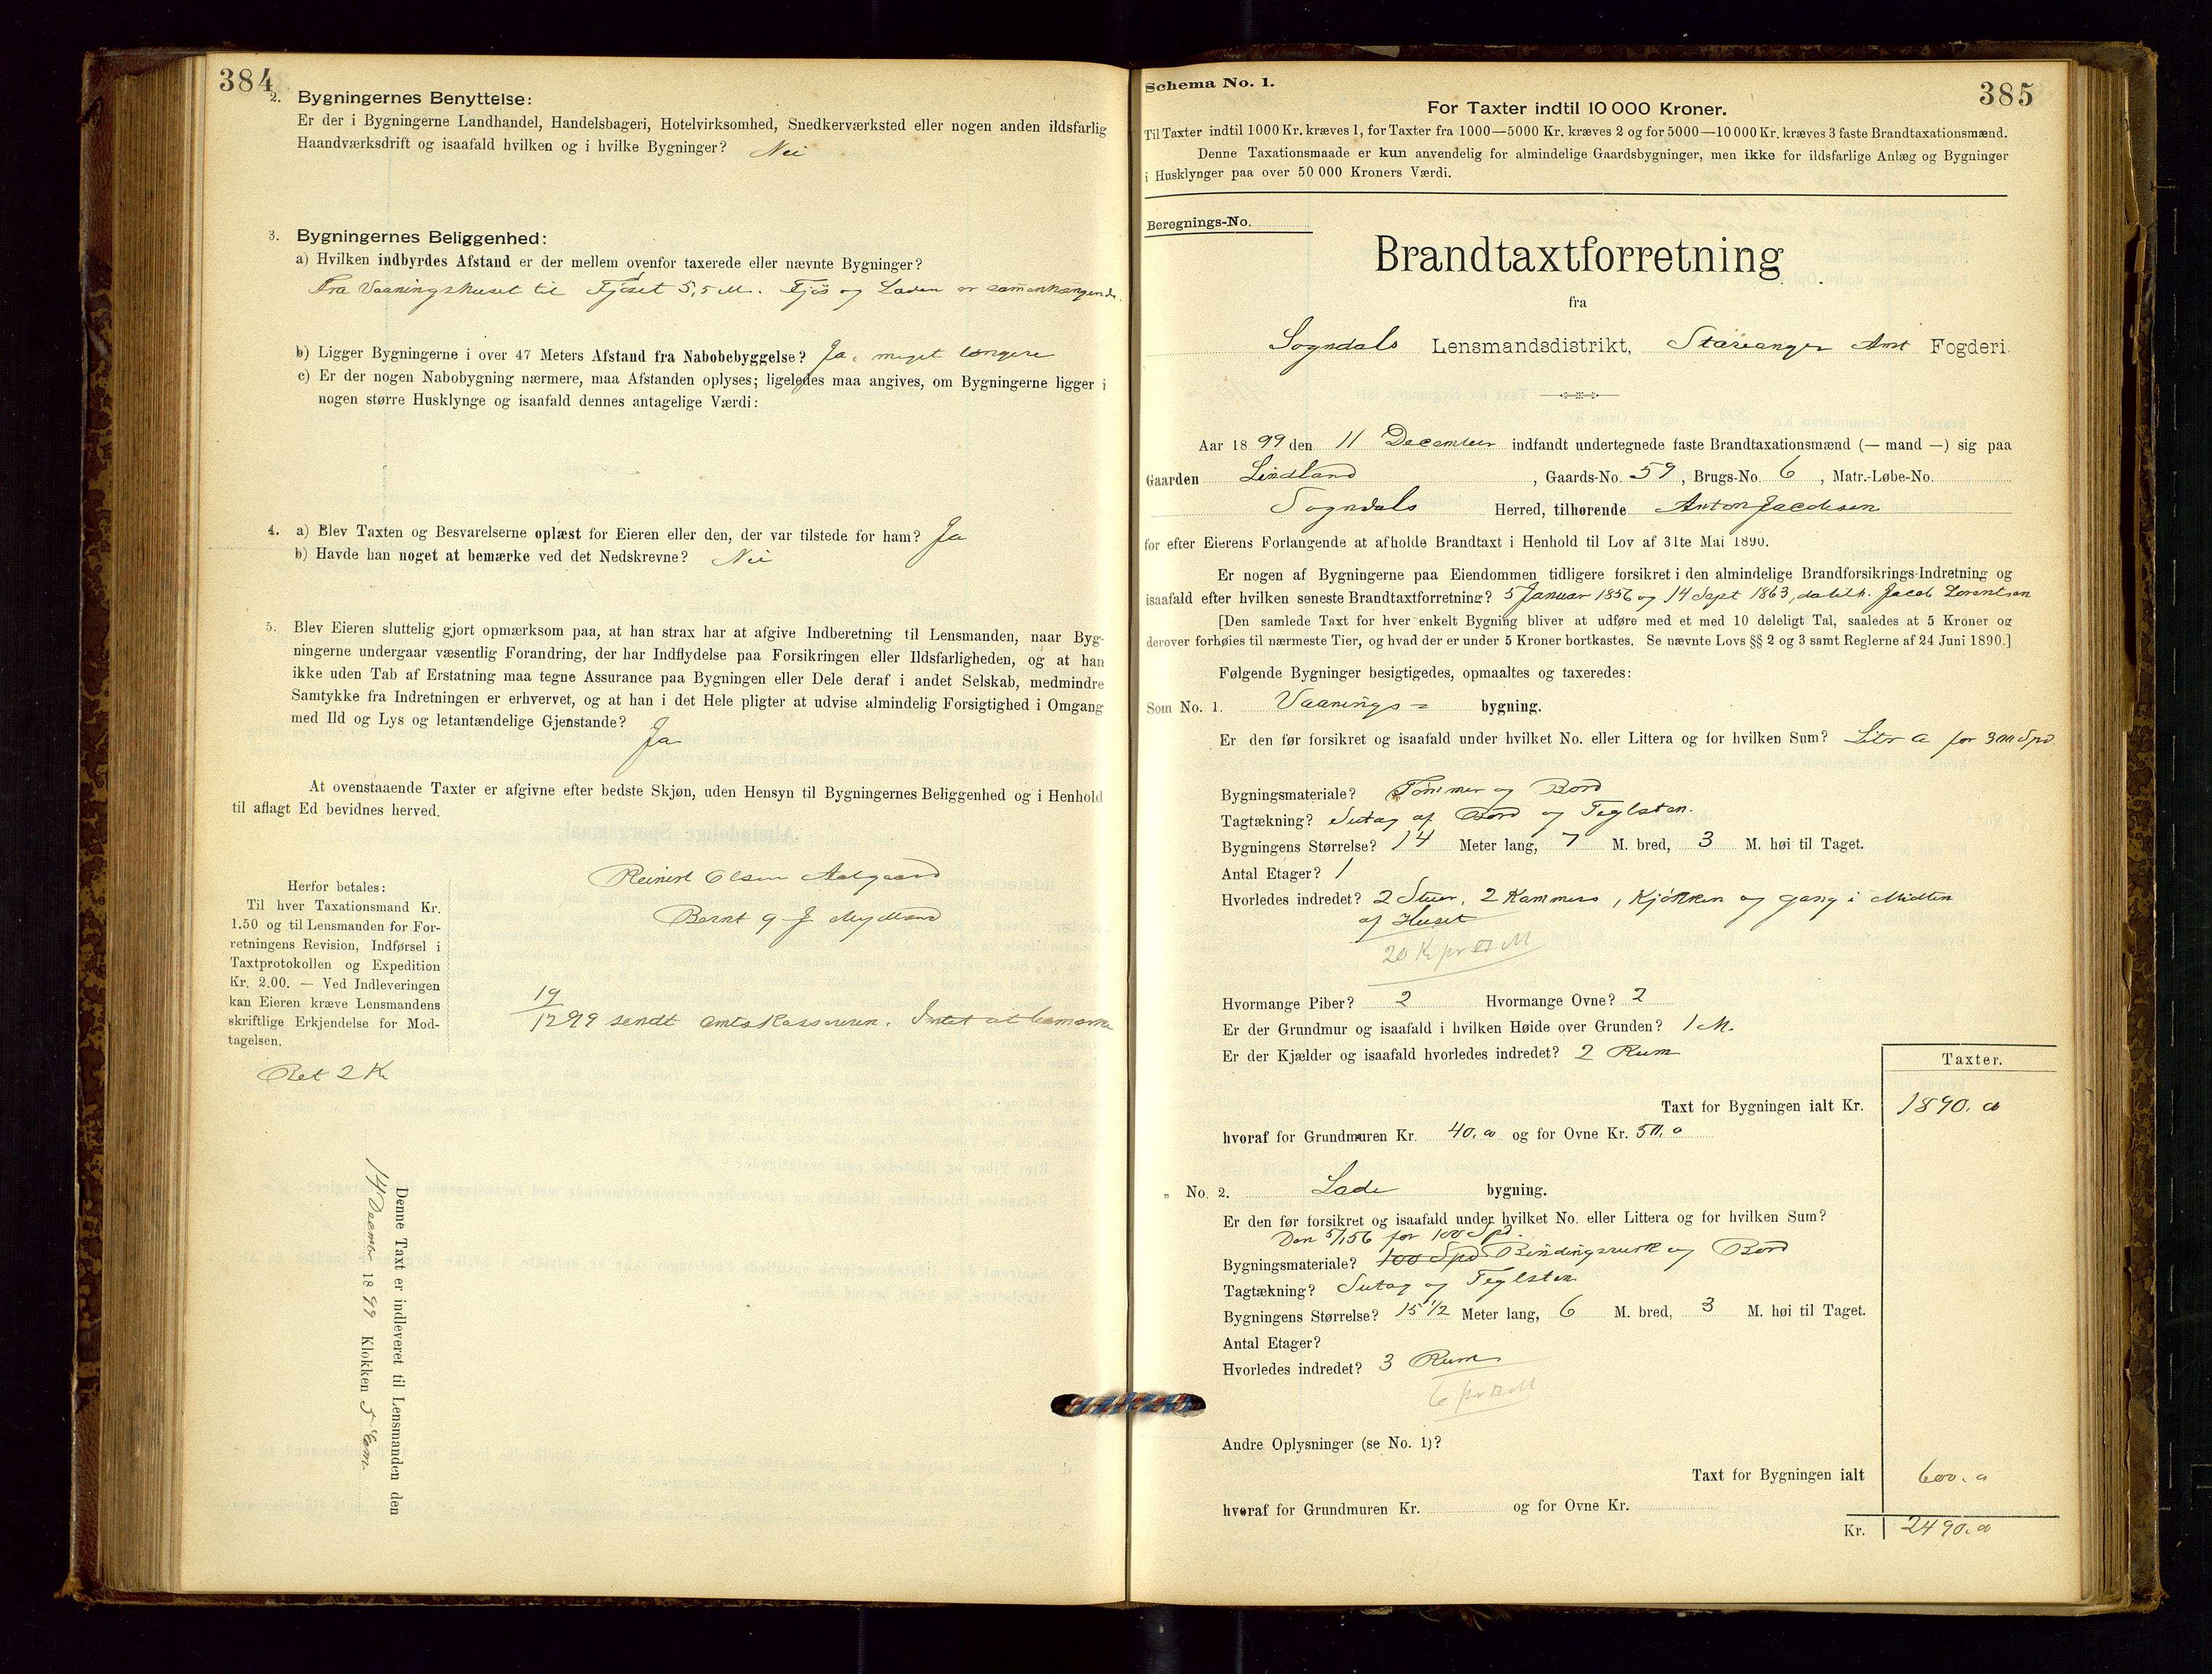 384
2. Bygningernes Benyttelse:
Er der i Bygningerne Landhandel, Handelsbageri, Hotelvirksomhed, Snedkerværksted eller nogen anden ildsfarlig
Haandværksdrift og isaafald hvilken og i hvilke Bygninger? Nei
3. Bygningernes Beliggenhed:
a) Hvilken indbyrdes Afstand er der mellem ovenfor taxerede eller nævnte Bygninger?
Fra Vaaningshuset til Fjøset 5,5 M. Fjøs og Laden er sammenhængende.
b) Ligger Bygningerne i over 47 Meters Afstand fra Nabobebyggelse? Ja, meget længere
c) Er der nogen Nabobygning nærmere, maa Afstanden oplyses; ligeledes maa angives, om Bygningerne ligger i
nogen større Husklynge og isaafald dennes antagelige Værdi:
4. a) Blev Taxten og Besvarelserne oplæst for Eieren eller den, der var tilstede for ham? Ja
b) Havde han noget at bemærke ved det Nedskrevne? Nei
5. Blev Eieren sluttelig gjort opmærksom paa, at han strax har at afgive Indberetning til Lensmanden, naar Byg-
ningerne undergaar væsentlig Forandring, der har Indflydelse paa Forsikringen eller Ildsfarligheden, og at han
ikke uden Tab af Erstatning maa tegne Assurance paa Bygningen eller Dele deraf i andet Selskab, medmindre
Samtykke fra Indretningen er erhvervet, og at han i det Hele pligter at udvise almindelig Forsigtighed i Omgang
med Ild og Lys og letantændelige Gjenstande? Ja
At ovenstaaende Taxter er afgivne efter bedste Skjøn, uden Hensyn til Bygningernes Beliggenhed og i Henhold
til aflagt Ed bevidnes herved.
Reinert Olsen Aalgaard
Bernt J Mydland
Herfor betales:
Til hver Taxationsmand Kr.
1.50 og til Lensmanden for For-
retningens Revision, Indførsel i
Taxtprotokollen og Expedition
Kr. 2.00. — Ved Indleveringen
kan Eieren kræve Lensmandens
skriftlige Erkjendelse for Mod-
tagelsen.
19/12 99 sendt Amtskassereren. Intet at bemærke
Bet 2 Kr
Denne Taxt er indleveret til Lensmanden den
14 December 1899 Klokken 5 Em.
385
Schema No. 1.
For Taxter indtil 10 000 Kroner.
Til Taxter indtil 1000 Kr. kræves 1, for Taxter fra 1000—5000 Kr. kræves 2 og for 5000—10 000 Kr. kræves 3 faste Brandtaxationsmænd.
Denne Taxationsmaade er kun anvendelig for almindelige Gaardsbygninger, men ikke for ildsfarlige Anlæg og Bygninger
i Husklynger paa over 50 000 Kroners Værdi.
Beregnings-No.
Brandtaxtforretning
fra
Sogndals Lensmandsdistrikt, Stavanger Amt Fogderi.
Aar 1899 den 11 December indfandt undertegnede faste Brandtaxationsmænd (— mand —) sig paa
Gaarden Lindland, Gaards-No. 59, Brugs-No. 6, Matr.-Løbe-No.
Sogndals Herred, tilhørende Anton Jacobsen
for efter Eierens Forlangende at afholde Brandtaxt i Henhold til Lov af 31te Mai 1890.
Er nogen af Bygningerne paa Eiendommen tidligere forsikret i den almindelige Brandforsikrings-Indretning og
isaafald efter hvilken seneste Brandtaxtforretning? 5 Januar 1856 og 14 Sept 1863, da tilh. Jacob Lorentsen
[Den samlede Taxt for hver enkelt Bygning bliver at udføre med et med 10 deleligt Tal, saaledes at 5 Kroner og
derover forhøies til nærmeste Tier, og hvad der er under 5 Kroner bortkastes. Se nævnte Lovs §§ 2 og 3 samt Reglerne af 24 Juni 1890.]
Følgende Bygninger besigtigedes, opmaaltes og taxeredes:
Som No. 1. Vaanings= bygning.
Er den før forsikret og isaafald under hvilket No. eller Littera og for hvilken Sum? Litr a for 300 Spd.
Bygningsmateriale? Tømmer og Bord
Tagtækning? Sutag af Bord og Teglsten.
Bygningens Størrelse? 14 Meter lang, 7 M. bred, 3 M. høi til Taget.
Antal Etager? 1
Hvorledes indredet? 2 Stuer, 2 Kammers, Kjøkken og gang i Midten
af Huset
20 K pr □ M
Hvormange Piber? 2 Hvormange Ovne? 2
Er der Grundmur og isaafald i hvilken Høide over Grunden? 1 M.
Er der Kjælder og isaafald hvorledes indredet? 2 Rum
Taxter.
Taxt for Bygningen ialt Kr. 1890.00
hvoraf for Grundmuren Kr. 40.00 og for Ovne Kr. 50.0
„ No. 2. Lade bygning.
Er den før forsikret og isaafald under hvilket No. eller Littera og for hvilken Sum?
Den 5/1 56 for 100 Spd.
Bygningsmateriale? 100 Spd Bindingsverk og Bord
Tagtækning? Sutag og Teglsten
Bygningens Størrelse? 15 1/2 Meter lang, 6 M. bred, 3 M. høi til Taget.
Antal Etager?
Hvorledes indredet? 3 Rum
6 pr □ M
Andre Oplysninger (se No. 1)?
Taxt for Bygningen ialt 600.0
hvoraf for Grundmuren Kr. og for Ovne Kr.
Kr. 2490.00